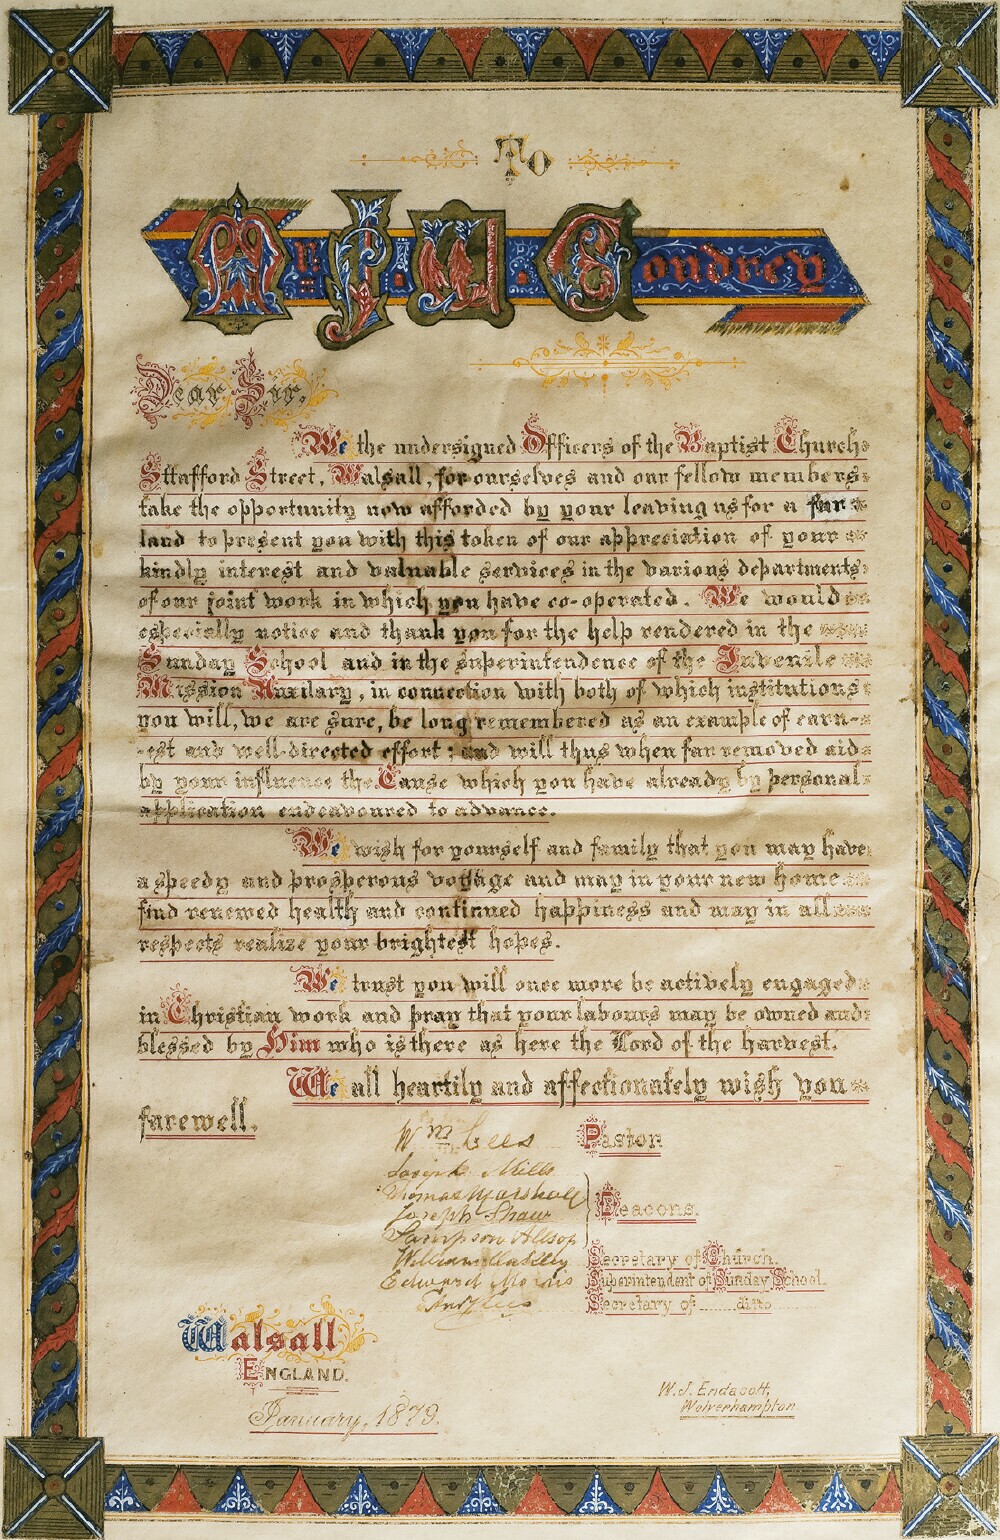 To
Mr J. U. Goudrey
Dear Sir,
We the undersigned Officers of the Baptist Church
Sttafford Street, Walsall, for ourselves and our fellow members
take the opportunity now afforded by your leaving us for a far
land to present you with this token of our appreciation of your
kindly interest and valuable services in the various departments
of our joint work in which you have co-operated. We would
especially notice and thank you for the help rendered in the
Sunday School and in the superintendence of the Juvenile
Mission Auxilary, in connection with both of which institutions
you will, we are sure, be long remembered as an example of earn-
-est and well-directed effort; and will thus when far removed aid
by your influence the Cause which you have already by personal
application endeavoured to advance.
We wish for yourself and family that you may have
a speedy and prosperous voyage and may in your new home
find renewed health and continued happiness and may in all
respects realize your brightest hopes.
We trust you will once more be actively engaged
in Christian work and pray that your labours may be owned and
blessed by Him who is there as here the Lord of the harvest.
We all heartily and affectionately wish you
farewell.
Wm Lees Pastor
Joseph Mills
Thomas Marshall
Joseph Shaw Deacons.
Sampson Allsop
William Secretary of Church.
Edward Morris Superintendent of Sunday School.
Lees Secretary of ditto
Walsall
England.
January, 1879.
W. J. Endacott,
Wolverhampton